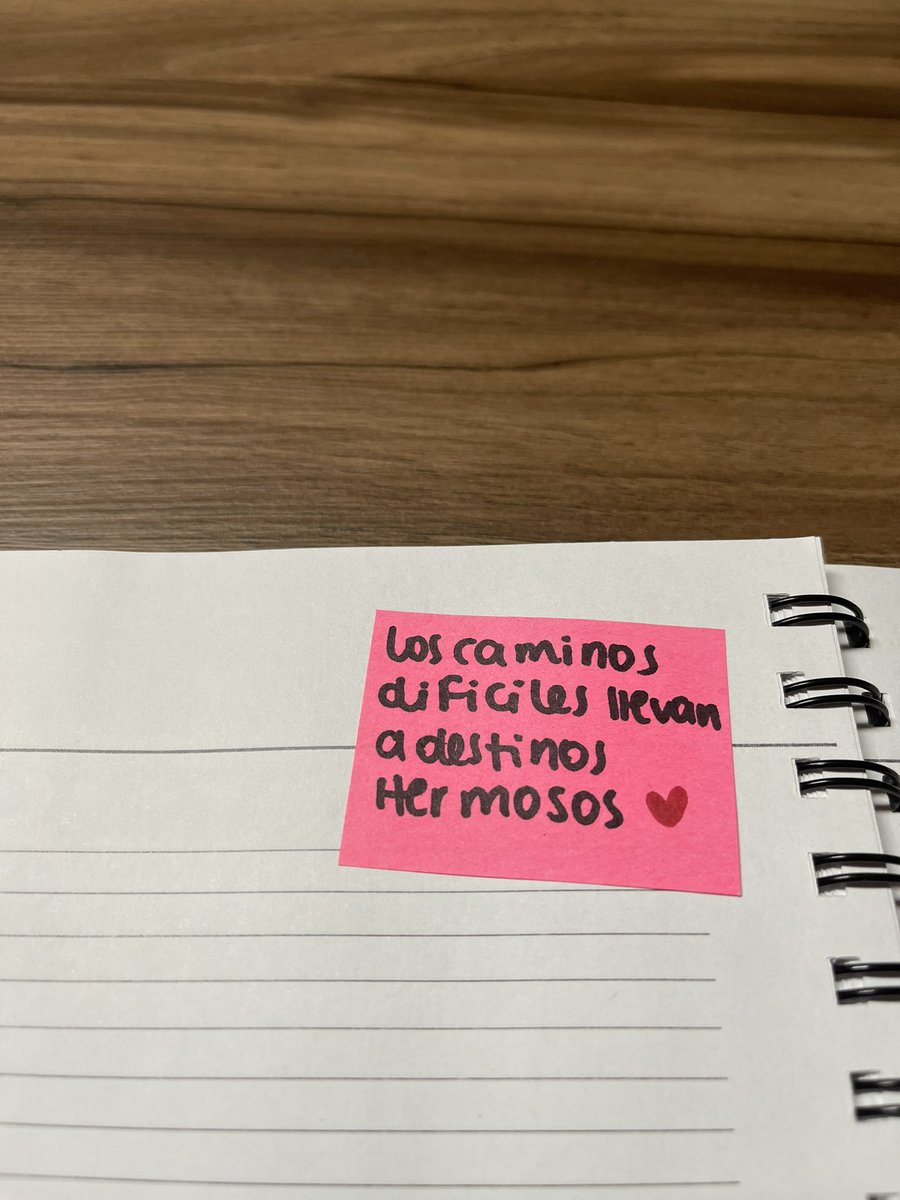 Los caminos
dificiles llevan
a destinos
Hermosos